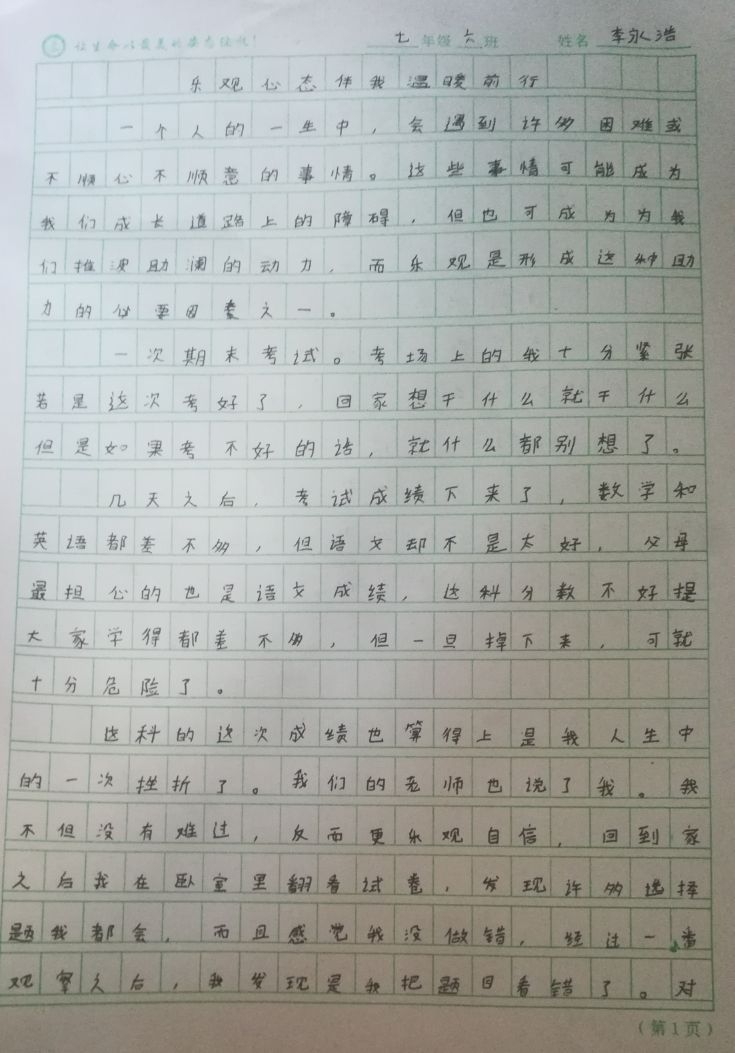 让生命以最美的姿态绽放！ 七年级六班 姓名 李永浩
乐观心态伴我温暖前行
一个人的一生中，会遇到许多困难或
不顺心不顺意的事情。这些事情可能成为
我们成长道路上的障碍，但也可成为为我
们推波助澜的动力，而乐观是形成这种助
力的必要因素之一。
一次期末考试。考场上的我十分紧张
若是这次考好了，回家想干什么就干什么
但是如果考不好的话，就什么都别想了。
几天之后，考试成绩下来了，数学和
英语都差不多，但语文却不是太好，父母
最担心的也是语文成绩，这科分数不好提
大家学得都差不多，但一旦掉下来，可就
十分危险了。
这科的这次成绩也算得上是我人生中
的一次挫折了。我们的老师也说了我。我
不但没有难过，反而更乐观自信，回到家
之后我在卧室里翻看试卷，发现许多选择
题我都会，而且感觉我没做错，经过一番
观察之后，我发现是我把题目看错了。对
（第1页）